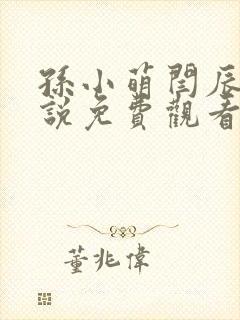 孫小萌閆辰
說免費觀看
董兆偉